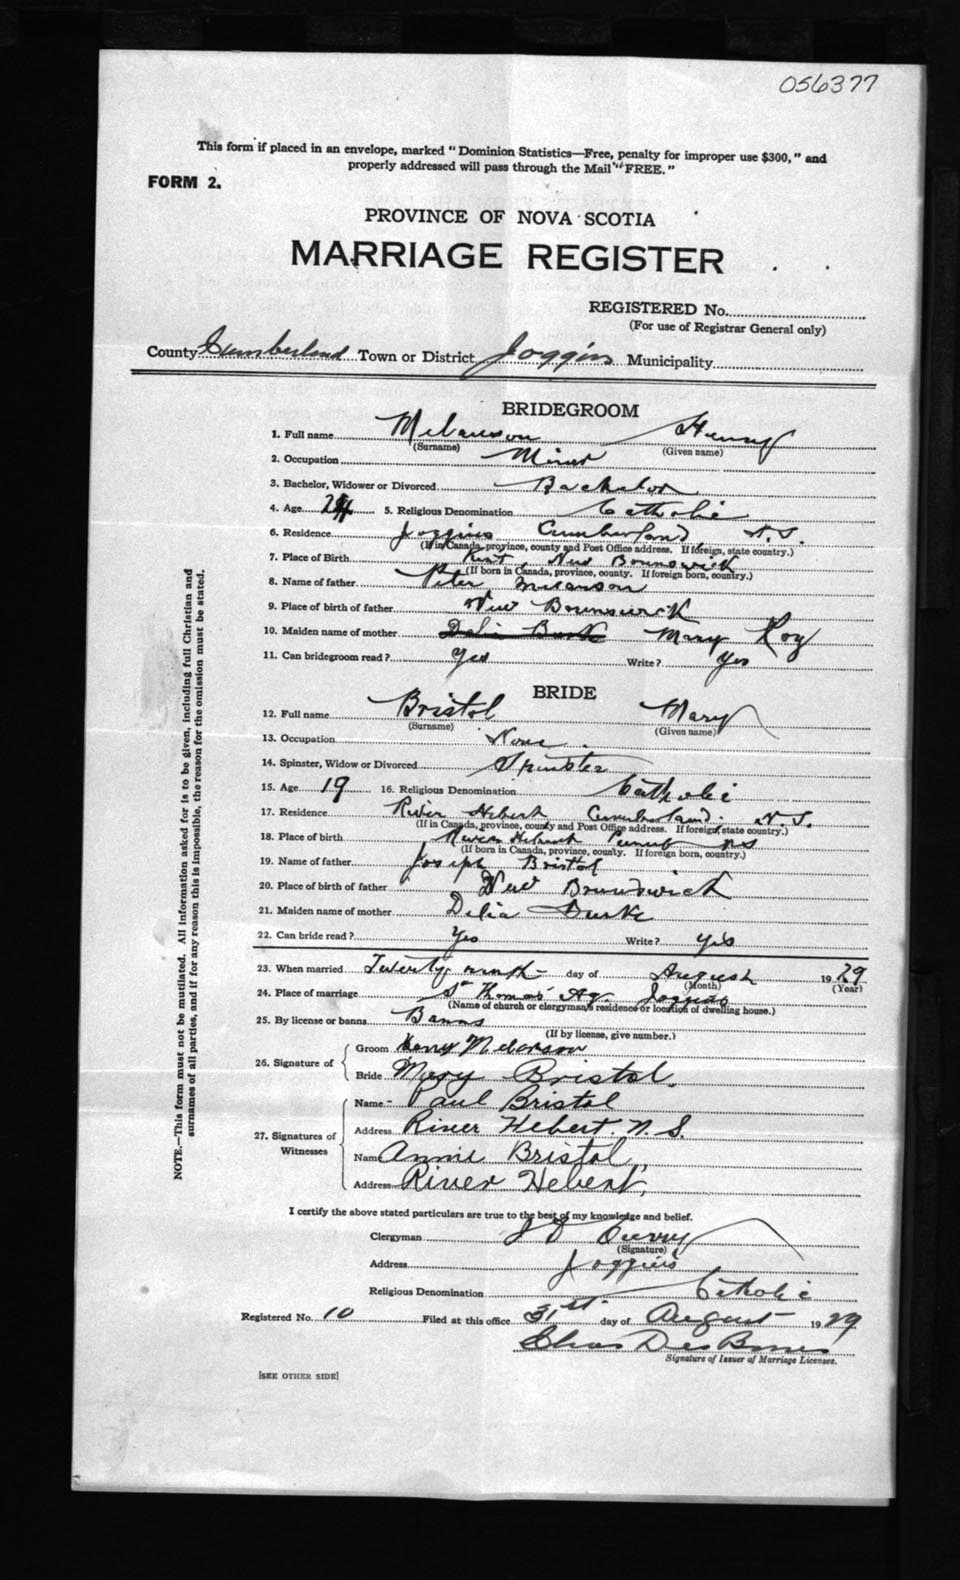 056377
This form if placed in an envelope, marked "Dominion Statistics—Free, penalty for improper use $300," and
properly addressed will pass through the Mail "FREE."
FORM 2.
PROVINCE OF NOVA SCOTIA
MARRIAGE REGISTER
REGISTERED No.
(For use of Registrar General only)
County Cumberland Town or District Joggins Municipality
BRIDEGROOM
1. Full name Melanson Henry
(Surname) (Given name)
2. Occupation Miner
3. Bachelor, Widower or Divorced Bachelor
4. Age 24 5. Religious Denomination Catholic
6. Residence Joggins Cumberland, N.S.
(If in Canada, province, county and Post Office address. If foreign, state country.)
7. Place of Birth Kent, New Brunswick
(If born in Canada, province, county. If foreign born, country.)
8. Name of father Peter Melanson
9. Place of birth of father New Brunswick
10. Maiden name of mother Delia Burke Mary Roy
11. Can bridegroom read? Yes Write? Yes
BRIDE
12. Full name Bristol Mary
(Surname) (Given name)
13. Occupation None
14. Spinster, Widow or Divorced Spinster
15. Age 19 16. Religious Denomination Catholic
17. Residence River Hebert Cumberland, N.S.
(If in Canada, province, county and Post Office address. If foreign, state country.)
18. Place of birth River Hebert Cumb N.S
(If born in Canada, province, county. If foreign born, country.)
19. Name of father Joseph Bristol
20. Place of birth of father New Brunswick
21. Maiden name of mother Delia Burke
22. Can bride read? Yes Write? yes
23. When married Twenty ninth day of August 1929
(Month) (Year)
24. Place of marriage St Thomas' Aq. Joggins
(Name of church or clergyman's residence or location of dwelling house.)
25. By license or banns Banns
(If by license, give number.)
26. Signature of Groom Henry Melanson
Bride Mary Bristol.
27. Signatures of Witnesses Name Paul Bristol
Address River Hebert N.S.
Name Annie Bristol,
Address River Hebert,
I certify the above stated particulars are true to the best of my knowledge and belief.
Clergyman J D Curry
(Signature)
Address Joggins
Religious Denomination Catholic
Registered No. 10 Filed at this office 31st. day of August 1929
Chas Des Barres
Signature of Issuer of Marriage Licenses.
[SEE OTHER SIDE]
NOTE.—This form must not be mutilated. All information asked for is to be given, including full Christian and
surnames of all parties, and if for any reason this is impossible, the reason for the omission must be stated.